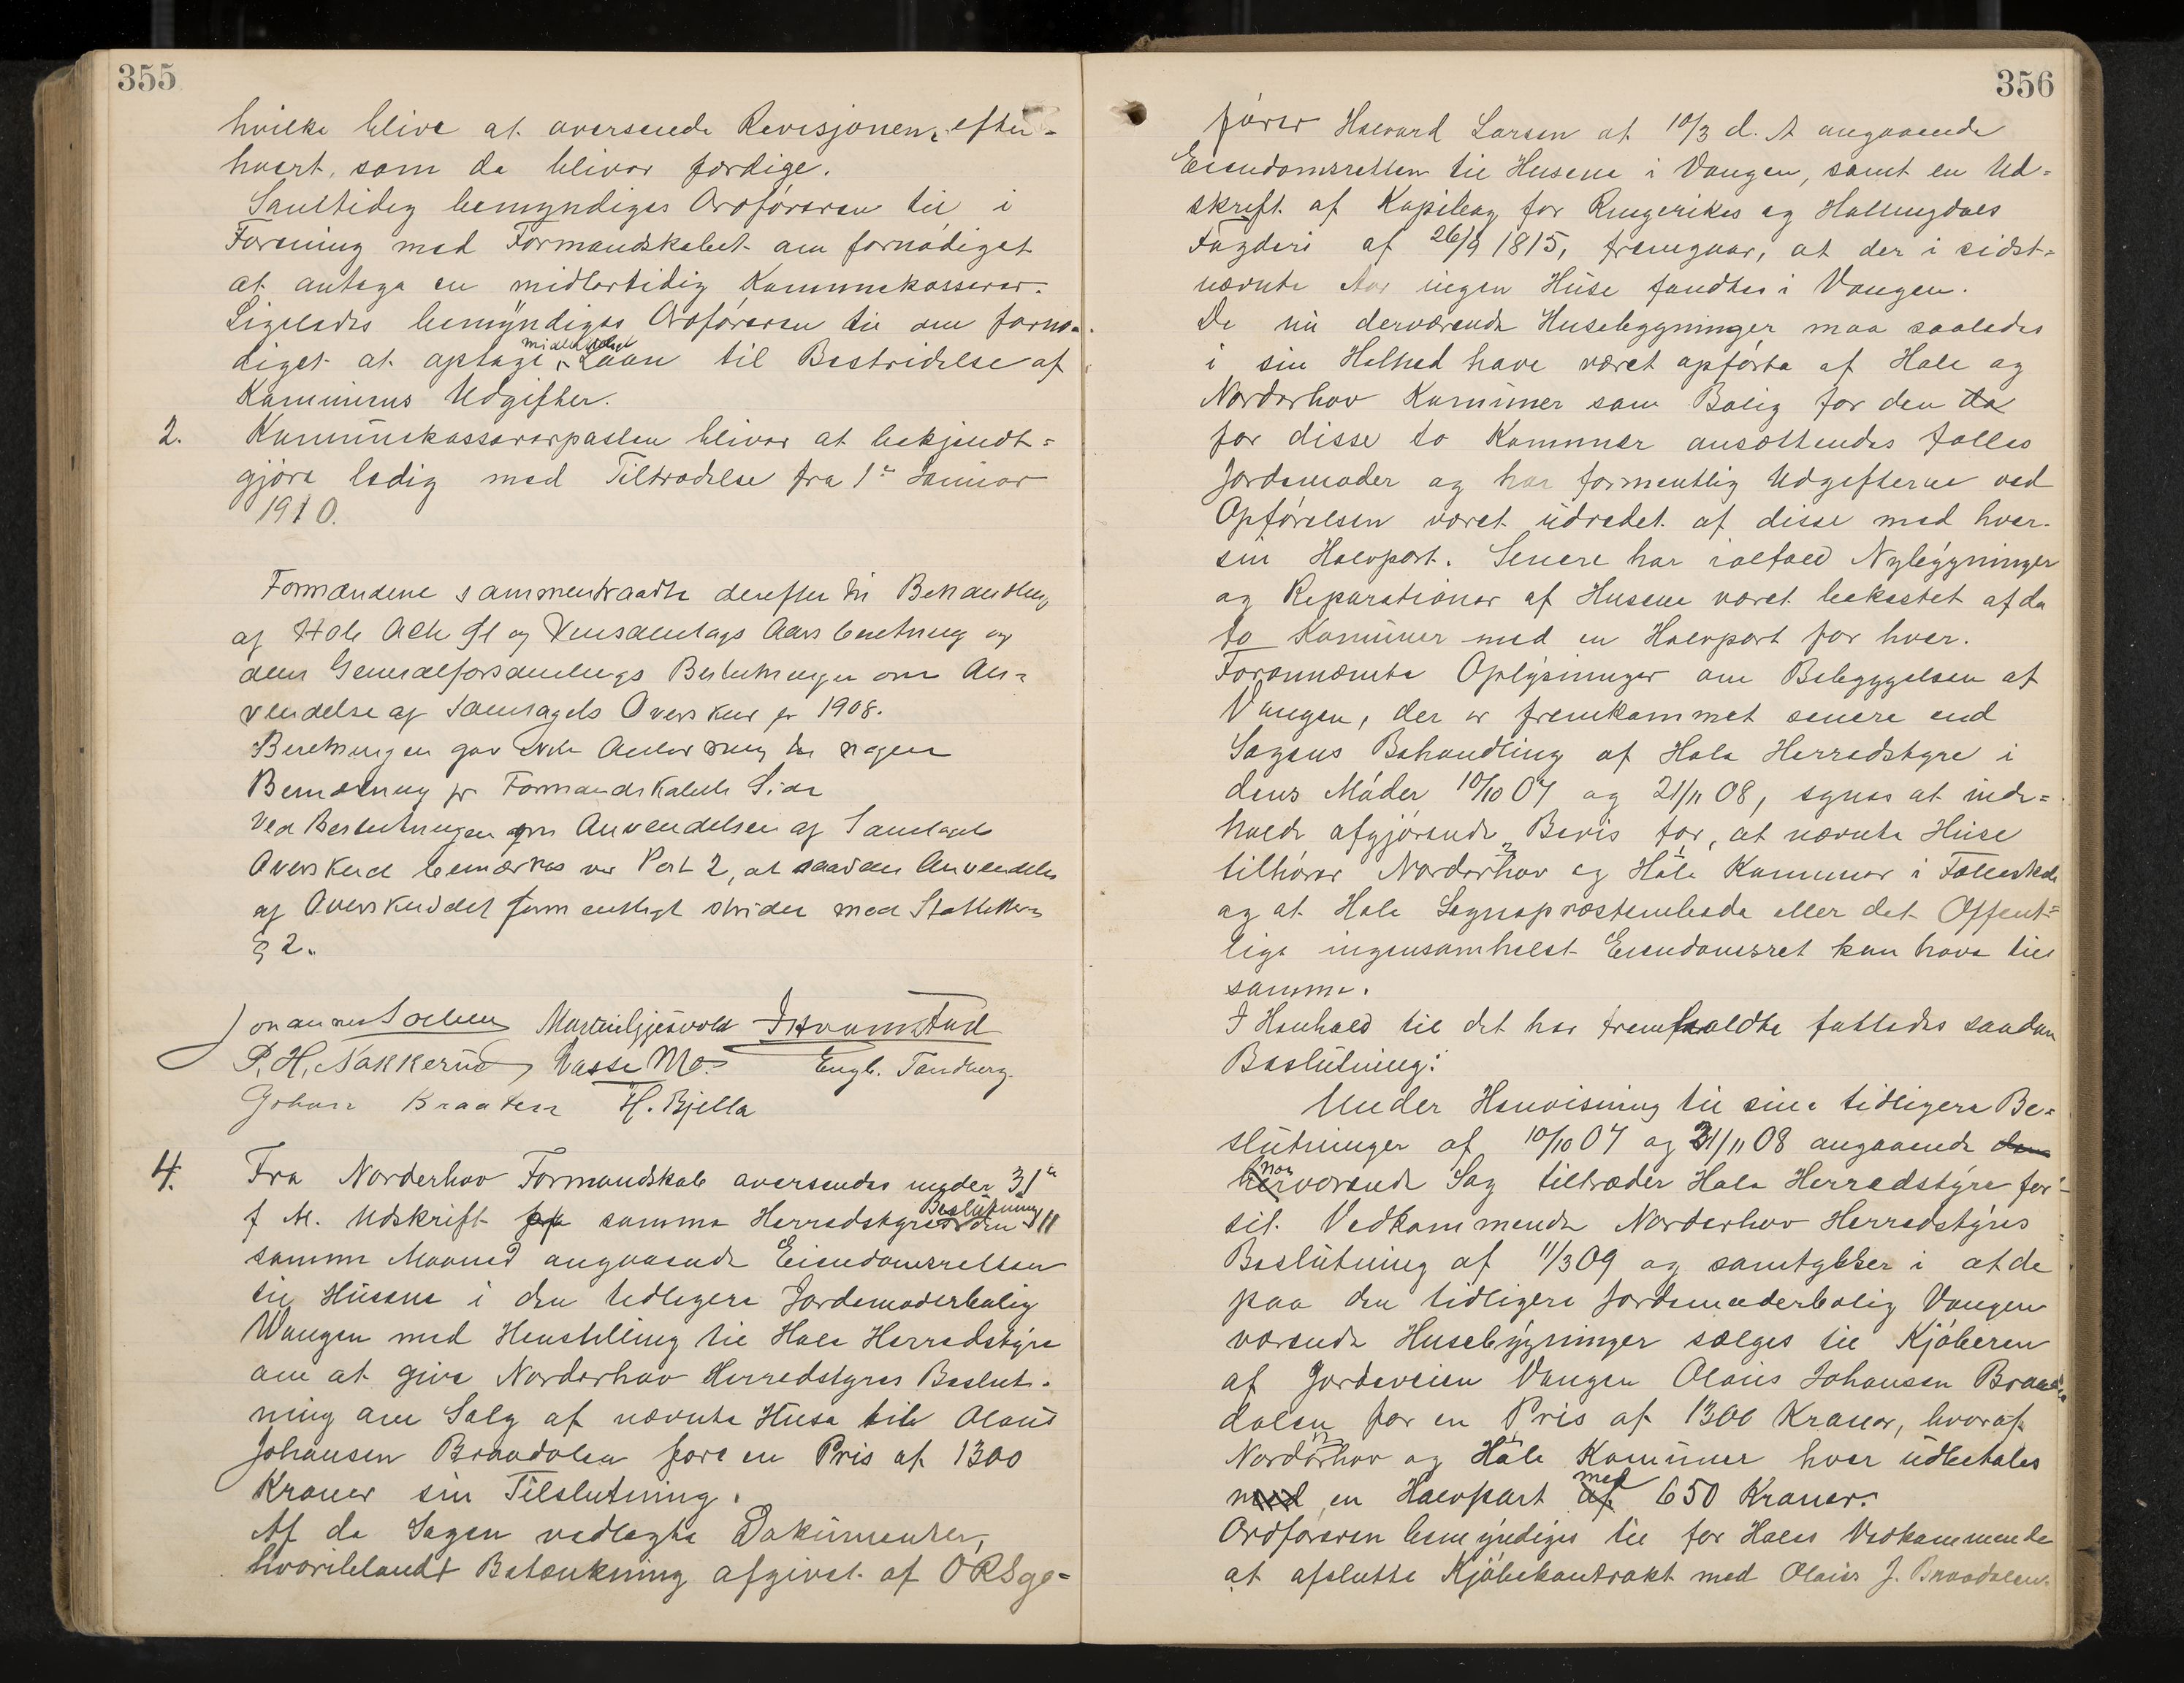 355
hvilke blive at oversende Revisjonen, efter-
hvert, som de bliver færdige.
Samtidig bemyndiges Ordføreren til i
Forening med Formandskabet om fornødiget
at antage en midlertidig Kommunekasserer.
Ligeledes bemyndiges Ordføreren til om fornø-
diget at optage midlertidigt Laan til Bestridelse af
Kommunens Udgifter.
2. Kommunekassererposten bliver at bekjendt-
gjøre ledig med Tiltrædelse fra 1ste Januar
1910.
Formændene sammentraadte derefter til Behandling
af Hole Øl og Vinsamlags Aarsberetning og
dens Generalforsamlings Beslutninger om An-
vendelse af Samlagets Overskud for 1908.
Beretningen gav ikke Anledning til nogen
Bemærkning fra Formandskabets Side
Ved Beslutningen om Anvendelsen af Samlagets
Overskud bemærkes ved Post 2, at saadan Anvendelse
af Overskuddet formentligt strider mod Statutternes
§ 2.
Johannes Martin Gjesvold
P. H. Nakkerud Lasse Mo. Engb. Tandberg.
Johan Braaten H. Bjella
4. Fra Norderhov Formandskab oversendes under 31te
f. M. Udskrift af samme Herredstyres Beslutning den 11
samme Maaned angaaende Eiendomsretten
til Husene i den tidligere Jordemoderbolig
Vangen med Henstilling til Hole Herredstyre
om at give Norderhov Herredstyres Beslut-
ning om Salg af nævnte Huse til Olaus
Johansen Braadalen for en Pris af 1300
Kroner sin Tilslutning.
Af de Sagen vedlagte Dokumenter,
hvoriblandt Betænkning afgivet af ORSge-
356
fører Haavard Larsen af 10/3 d. A angaaende
Eiendomsretten til Husene i Vangen, samt en Ud-
skrift af Kopibog for Ringerikes og Hallingdals
Fogderi af 26/9 1815, fremgaar, at der i sidst-
nævnte Aar ingen Huse fandtes i Vangen.
De nu derværende Husebygninger maa saaledes
i sin Helhed have været opførte af Hole og
Norderhov Kommuner som Bolig for den da
for disse to Kommuner ansættendes fælles
Jordemoder og har formentlig Udgifterne ved
Opførelsen været udredet af disse med hver-
sin Halvpart. Senere har ialfald Nybygninger
og Reparationer af Husene været bekostet af de
to Kommuner med en Halvpart for hver.
Forannævnte Oplysninger om Bebyggelsen af
Vangen, der er fremkommet senere end
Sagens Behandling af Hole Herredstyre i
dens Møder 10/10 07 og 21/11 08, synes at inde-
holde afgjørende Bevis for, at nævnte Huse
tilhører Norderhov og Hole Kommuner i Fælleskab
og at Hole Sognepræstembede eller det Offent-
lige ingensomhelst Eiendomsret kan have til
samme.
I Henhold til det her fremholdte fattedes saadan
Beslutning:
Under Henvisning til sine tidligere Be-
slutninger af 10/10 07 og 21/11 08 angaaende
nærværende Sag tiltræder Hole Herredstyre for
sit Vedkommende Norderhov Herredstyres
Beslutning af 11/3 09 og samtykker i at de
paa den tidligere Jordemoderbolig Vangen
værende Husebygninger sælges til Kjøberen
af Jordveien Vangen Olaus Johansen Braa-
dalen for en Pris af 1300 Kroner, hvoraf
Norderhov og Hole Kommuner hver udbetales
med en Halvpart af med 650 Kroner.
Ordføreren bemyndiges til for Holes Vedkommende
at afslutte Kjøbekontrakt med Olaus J. Braadalen.